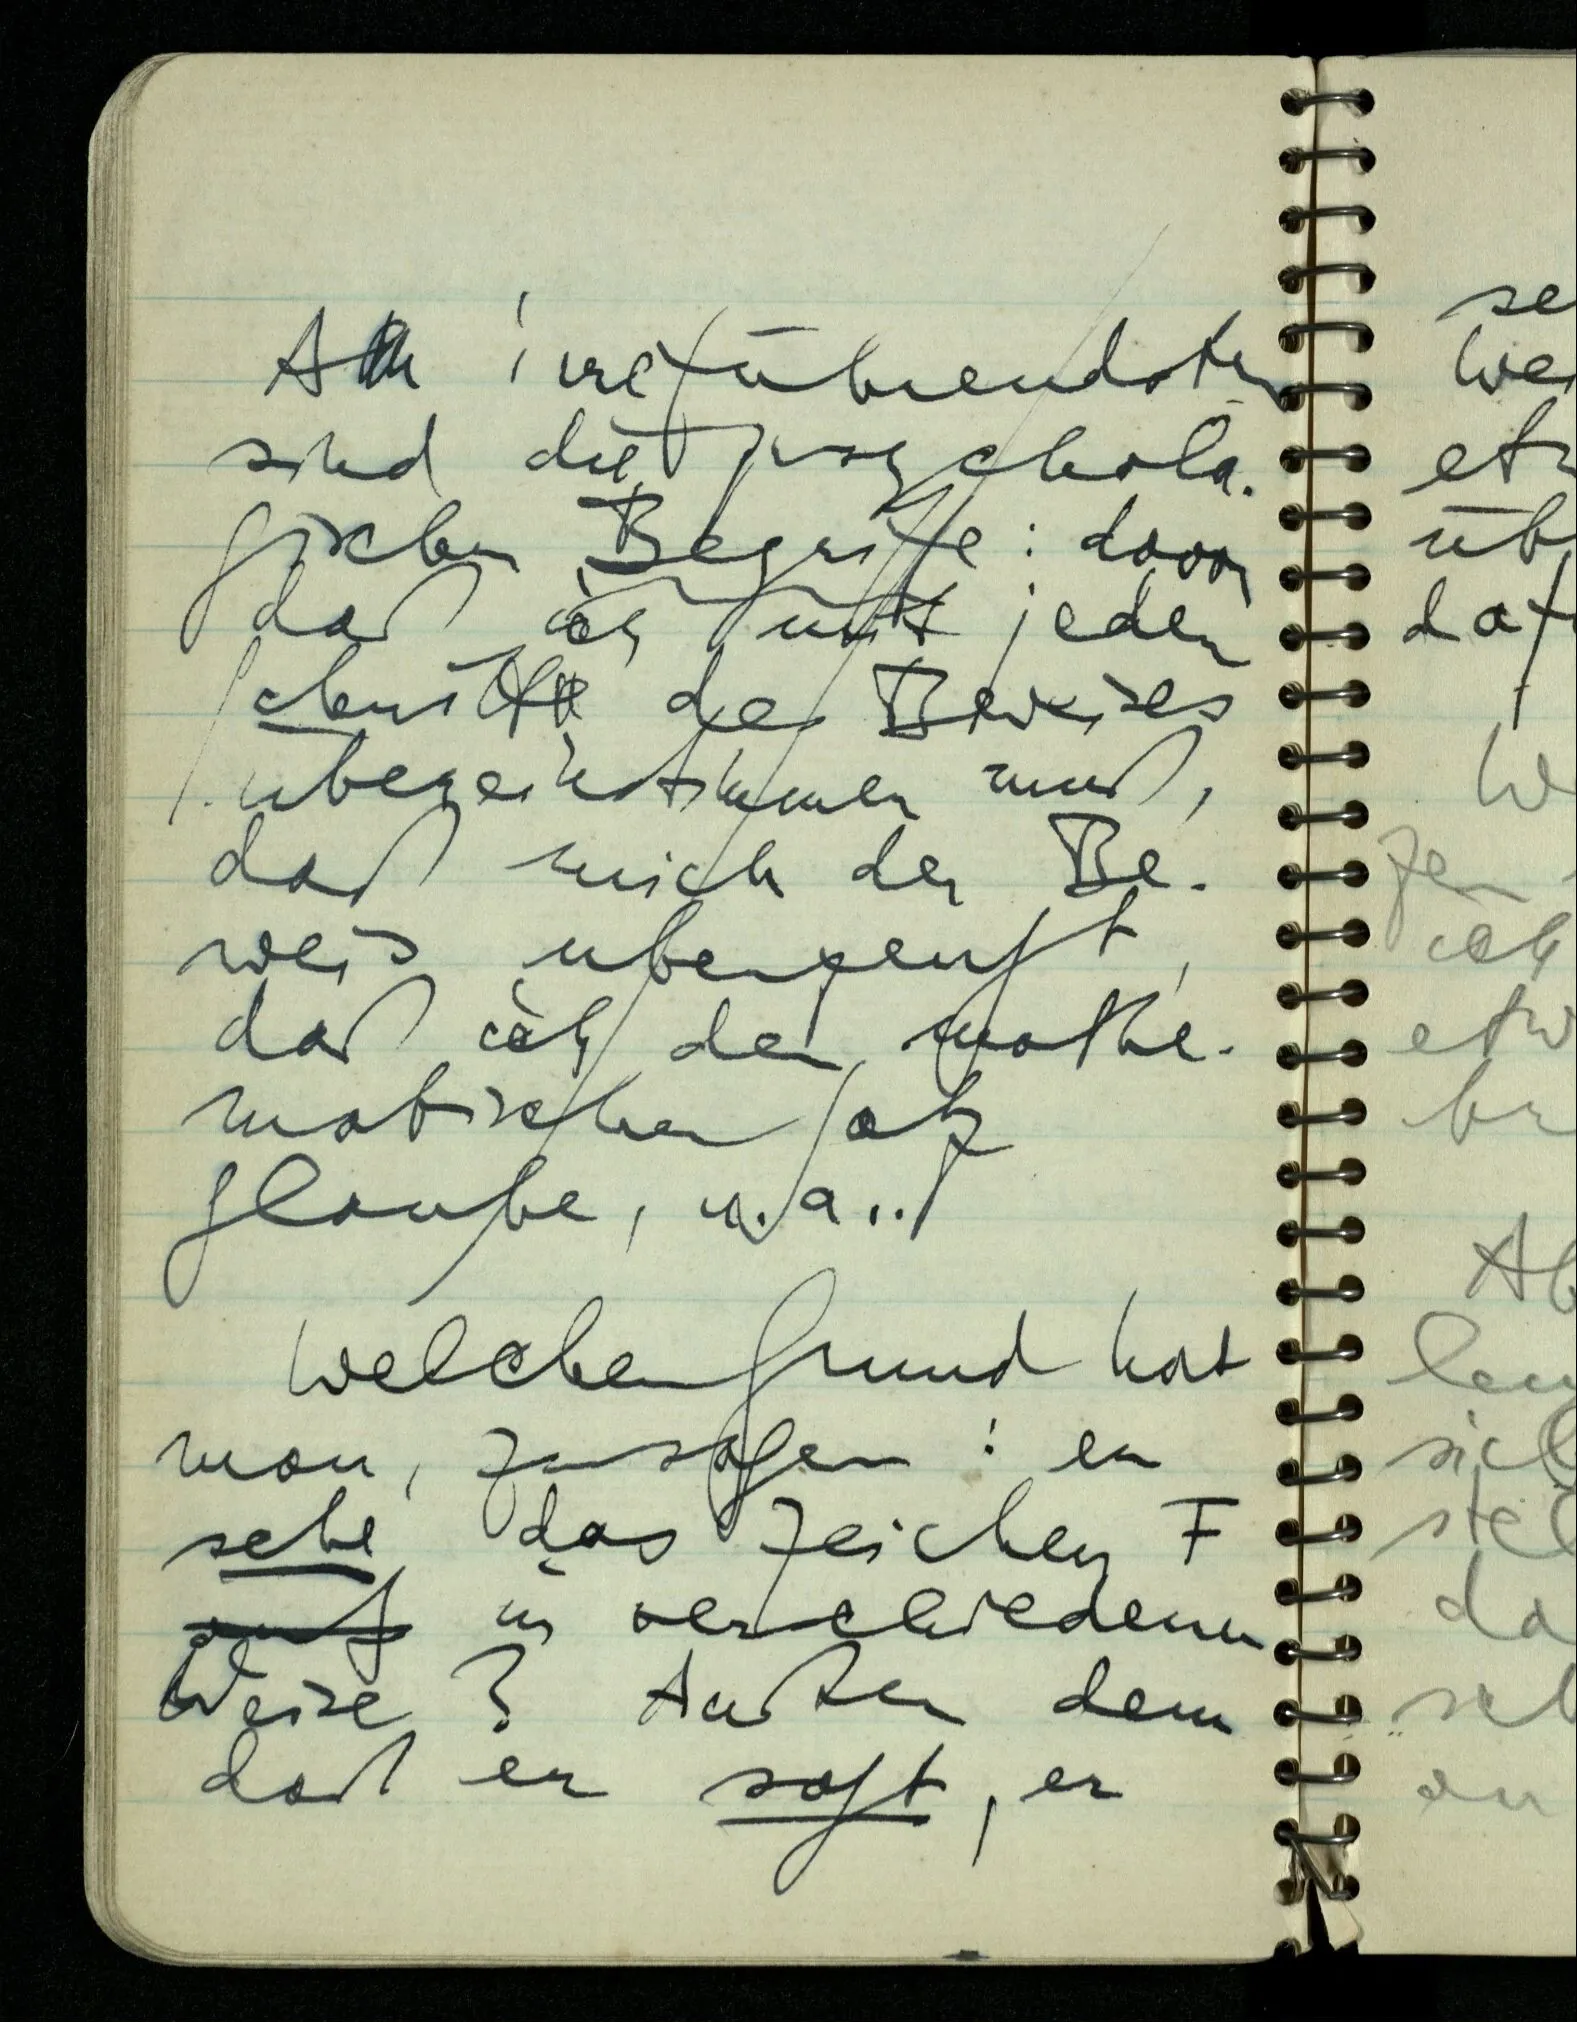 Am irreführendsten
sind die psycholo-
gischen Begriffe: davon
daß ich mit jedem
Schritt des Beweises
übereinstimmen muß,
daß mich der Be-
weis überzeugt,
daß ich den mathe-
matischen Satz
glaube, u.a..
Welchen Grund hat
man, zu sagen: er
sehe das Zeichen F
auf in verschiedener
Weise? Außer dem
daß er sagt, er
se
We
et
üb
daf
W
zen
ich
etw
br
Ab
len
sich
stel
da
seh
an